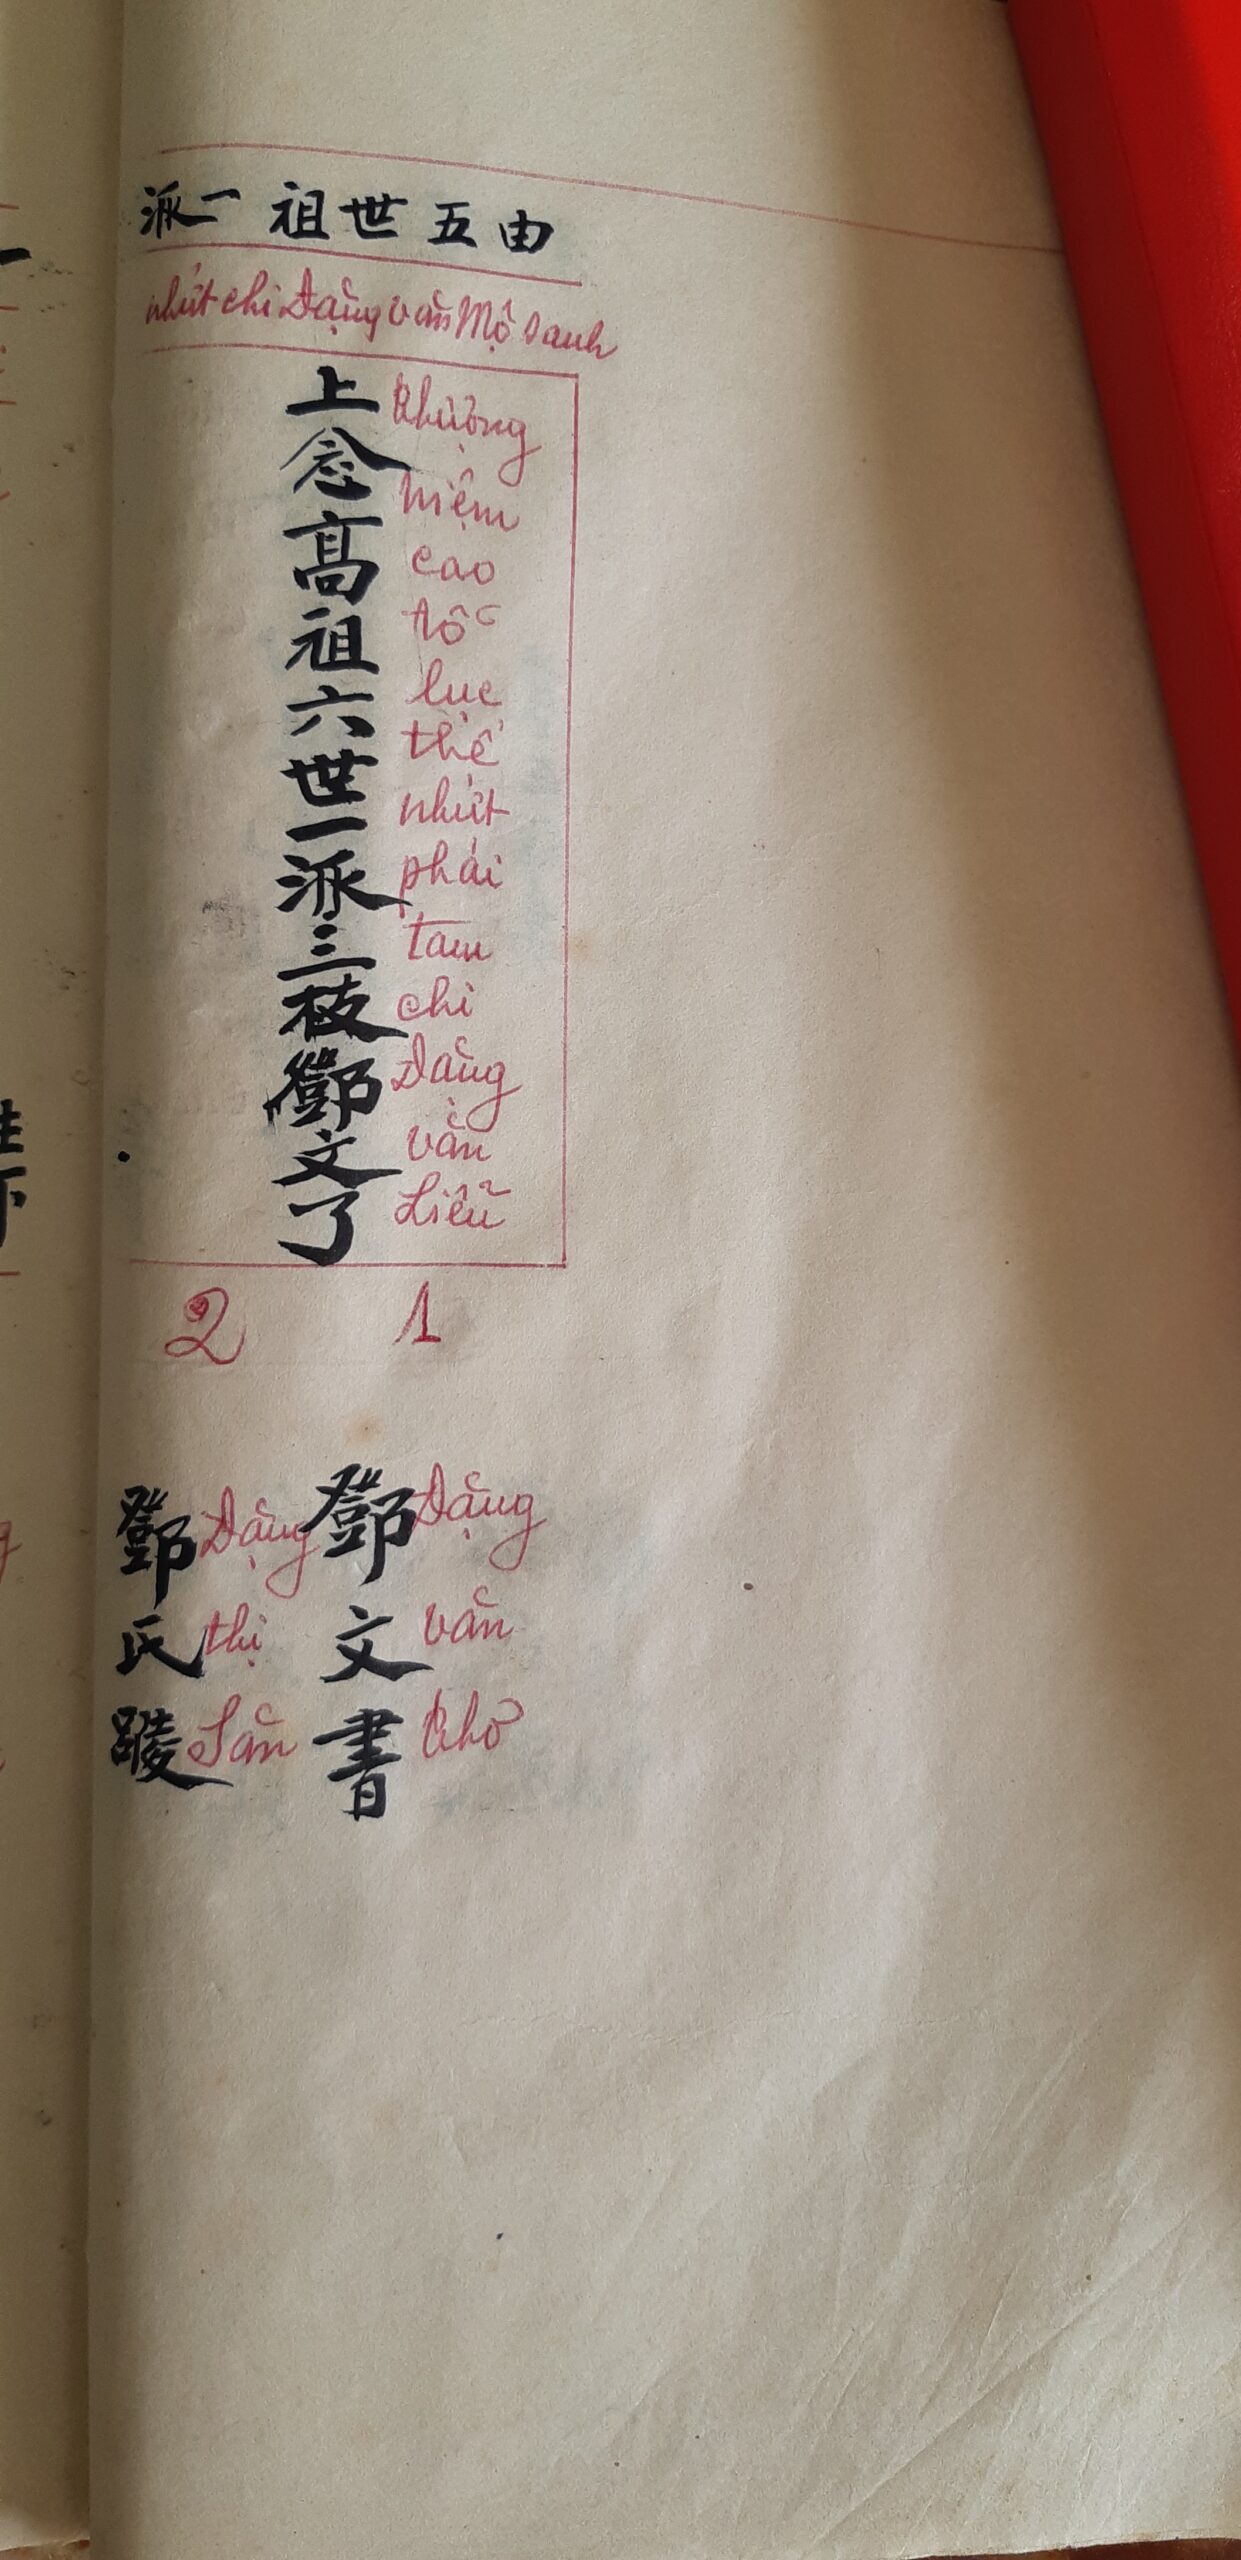 由五世祖一派
nhứt chi Đặng văn Mộ sanh
上念高祖六世一派三枝鄧文了
thượng niệm cao tổ lục thế nhứt phái tam chi Đặng văn Liễu
1
2
鄧文書
Đặng văn thơ
鄧氏
Đặng thị